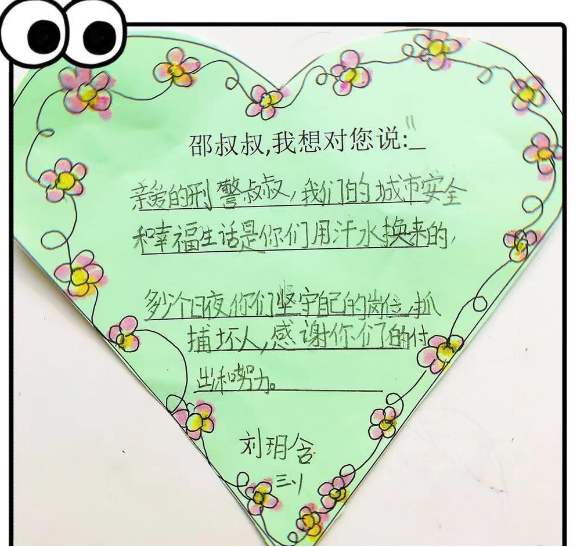 邵叔叔,我想对您说:"_
亲爱的刑警叔叔,我们的城市安全
和幸福生活是你们用汗水换来的,
多少个日夜,你们坚守自己的岗位,抓
捕坏人,感谢你们的付
出和努力。
刘玥含
三.1